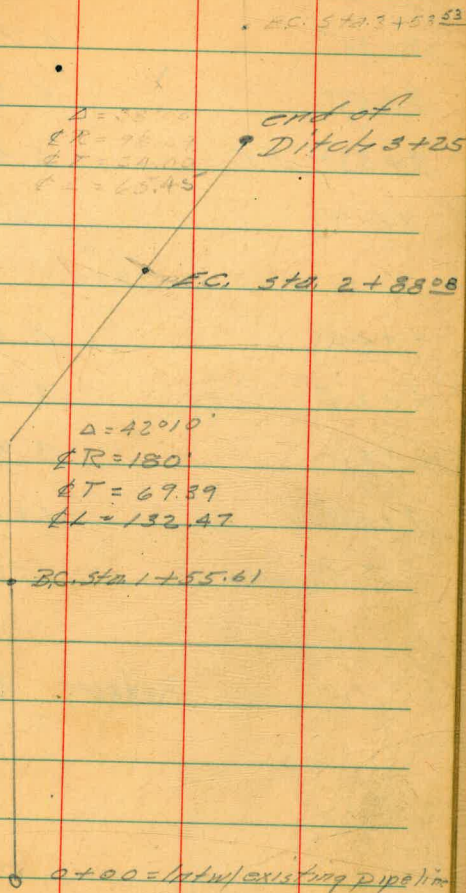 E.C. sta. 3+53 53
end of
Ditch 3+25
℄ L = 65.45
E.C. sta. 2+88 08
Δ = 42°10'
℄ R = 180'
℄ T = 69.39
℄ L = 132.47
B.C. sta. 1+55.61
0+00 = Int w/existing pipeline